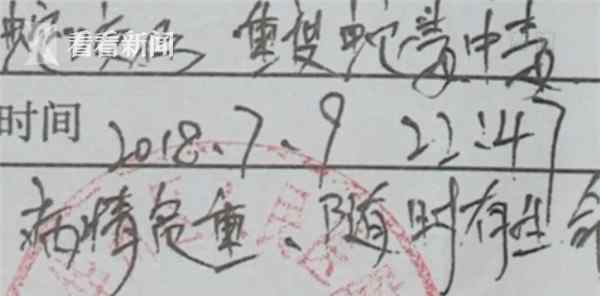 蛇咬伤 重度蛇毒中毒
看看新闻
时间 2018.7.9 22:47
病情危重、随时有生命